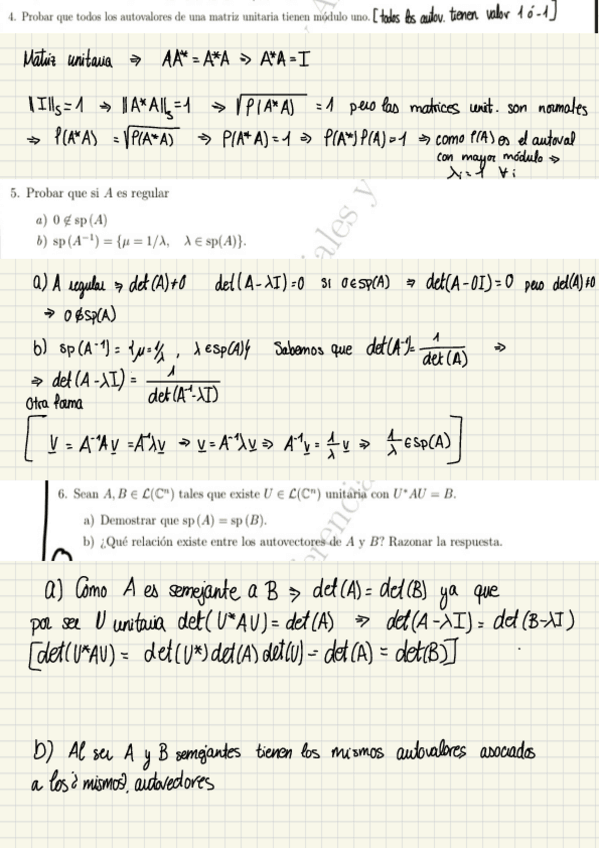 4. Probar que todos los autovalores de una matriz unitaria tienen módulo uno. [todos los autov. tienen valor 1 ó -1]
Matriz unitaria ⇒ AA* = A*A ⇒ A*A = I
‖I‖s = 1 ⇒ ‖A*A‖s = 1 ⇒ √ρ(A*A) = 1 pero las matrices unit. son normales
⇒ ρ(A*A) = √ρ(A*A) ⇒ ρ(A*A) = 1 ⇒ ρ(A*)ρ(A) = 1 ⇒ como ρ(A) es el autoval
con mayor módulo ⇒
λi = 1 ∀i
5. Probar que si A es regular
a) 0 ∉ sp(A)
b) sp(A⁻¹) = {μ = 1/λ, λ ∈ sp(A)}.
a) A regular ⇒ det(A) ≠ 0 det(A-λI) = 0 si 0 ∈ sp(A) ⇒ det(A-0I) = 0 pero det(A) ≠ 0
⇒ 0 ∉ sp(A)
b) sp(A⁻¹) = {μ = 1/λ, λ ∈ sp(A)} Sabemos que det(A⁻¹) = 1/det(A) ⇒
⇒ det(A-λI) = 1/det(A⁻¹-λI)
Otra forma
[ v = A⁻¹Av = A⁻¹λv ⇒ v = A⁻¹λv ⇒ A⁻¹v = 1/λ v ⇒ 1/λ ∈ sp(A) ]
6. Sean A, B ∈ L(ℂⁿ) tales que existe U ∈ L(ℂⁿ) unitaria con U*AU = B.
a) Demostrar que sp(A) = sp(B).
b) ¿Qué relación existe entre los autovectores de A y B? Razonar la respuesta.
a) Como A es semejante a B ⇒ det(A) = det(B) ya que
por ser U unitaria det(U*AU) = det(A) ⇒ det(A-λI) = det(B-λI)
[det(U*AU) = det(U*)det(A)det(U) = det(A) = det(B)]
b) Al ser A y B semejantes tienen los mismos autovalores asociados
a los ¿mismos? autovectores